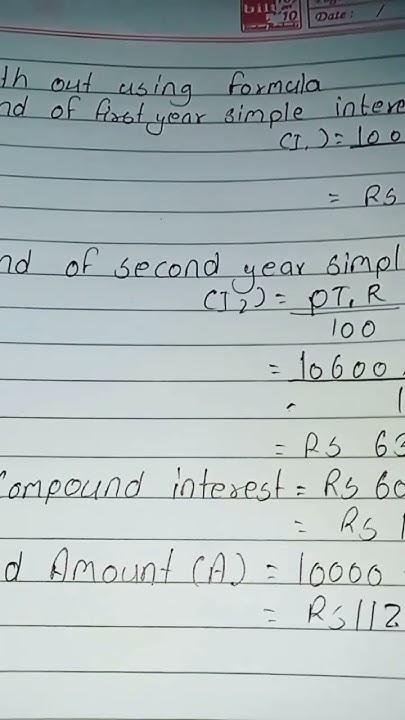 Date: /
th out using formula
nd of first year simple intere
(I₁) = 100
= RS
nd of second year simpl
(I₂) = PT₁R
100
= 10600
1
= RS 63
Compound interest = RS 60
= RS 1
d Amount (A) = 10000
= RS 112